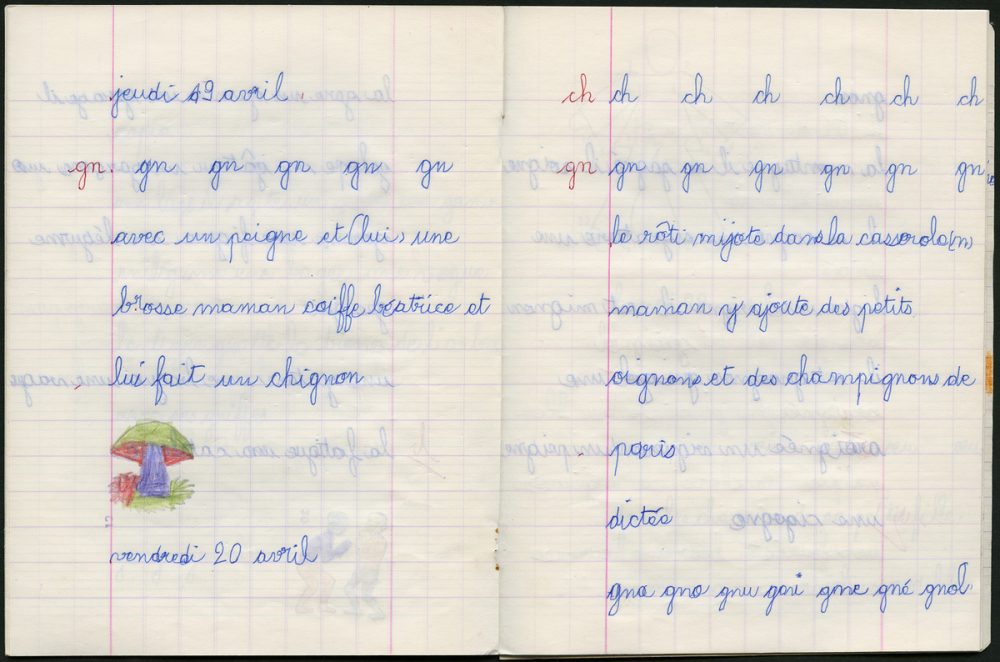 jeudi 19 avril.
gn gn gn gn gn gn
avec un peigne et (lui) une
brosse maman coiffe béatrice et
lui fait un chignon
vendredi 20 avril
ch ch ch ch ch ch ch
gn gn gn gn gn gn gn
le rôti mijote dans la casserole (m)
maman y ajoute des petits
oignons et des champignons de
paris
dictée
gna gno gnu gni gne gné gnol